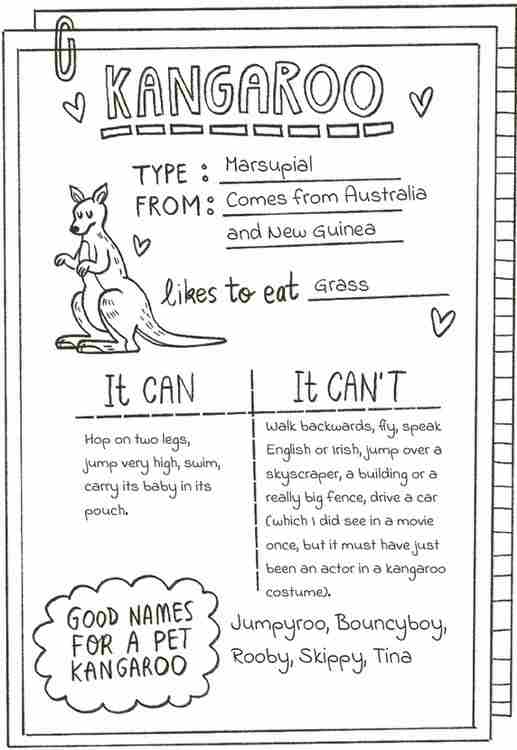 KANGAROO
TYPE: Marsupial
FROM: Comes from Australia
and New Guinea
likes to eat Grass
It CAN
Hop on two legs,
jump very high, swim,
carry its baby in its
pouch.
It CAN'T
Walk backwards, fly, speak
English or Irish, jump over a
skyscraper, a building or a
really big fence, drive a car
(which I did see in a movie
once, but it must have just
been an actor in a kangaroo
costume).
GOOD NAMES
FOR A PET
KANGAROO
Jumpyroo, Bouncyboy,
Rooby, Skippy, Tina